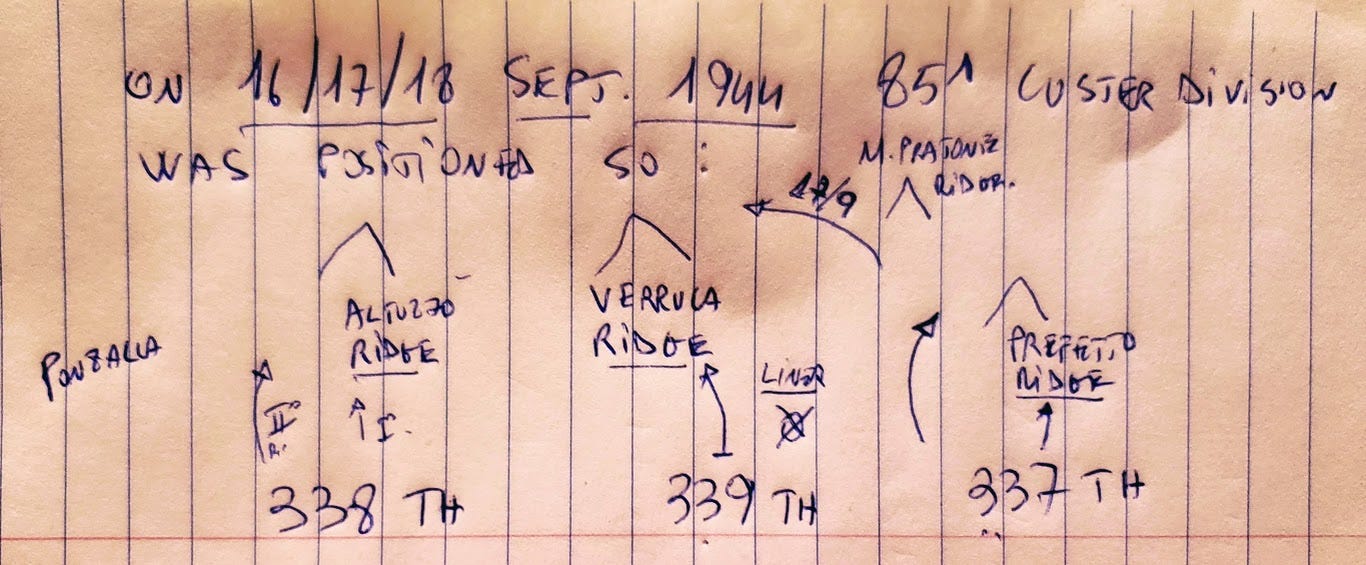 ON 16/17/18 SEPT. 1944 85^ CUSTER DIVISION
WAS POSITIONED SO :
M. PRATONE
RIDGE.
17/9
ALTUZZO
RIDGE
VERRUCA
RIDGE
PREFETTO
RIDGE
PONZALLA
LINER
II°
R.
I.
338 TH
339 TH
337 TH